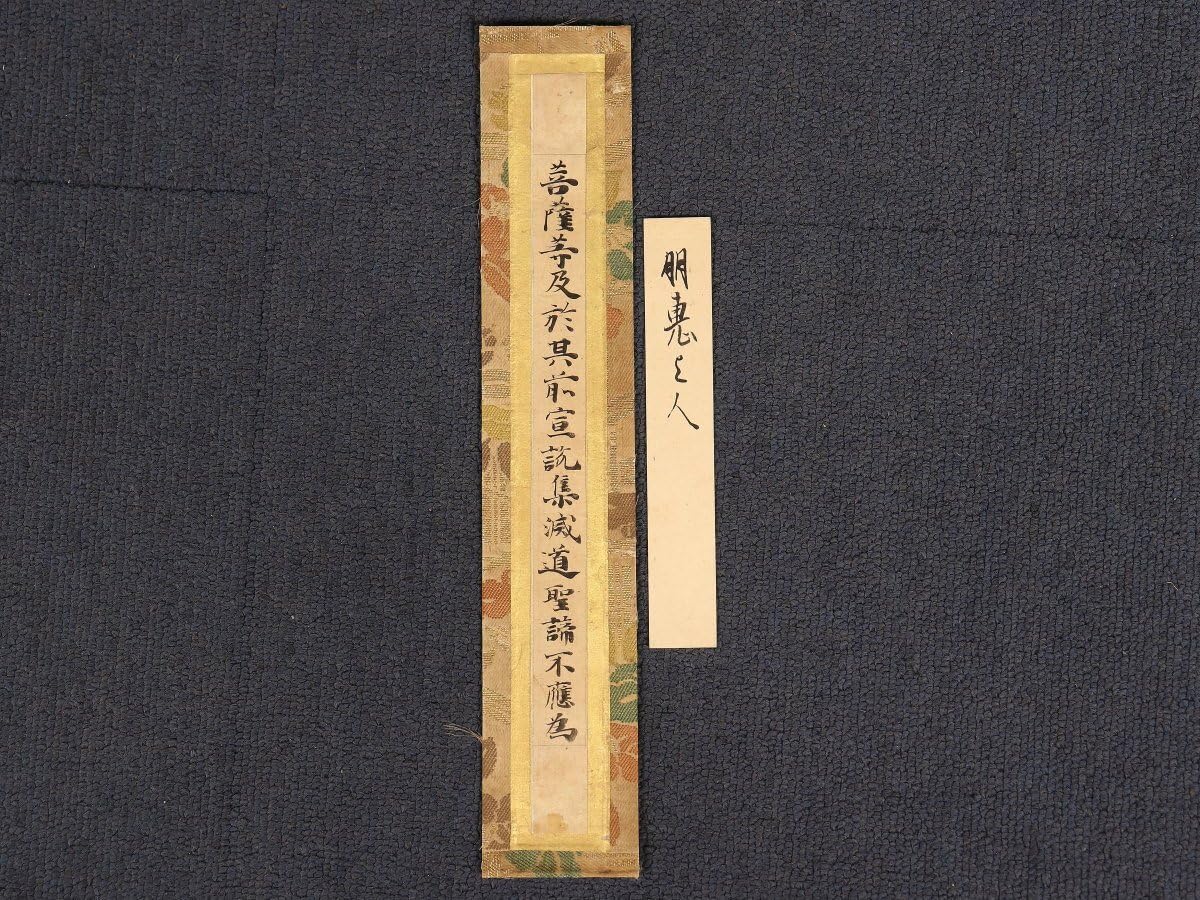 菩薩等及於其前宣説集滅道聖諦不應為
明惠上人